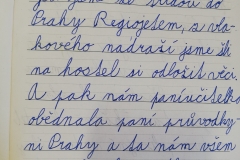 jeli jsme ve středu do
Prahy Regiojetem, z vla-
kového nádraží jsme šli
na hostel si odložit věci.
A pak nám paní učitelka
objednala paní průvodky-
ni Prahy a ta nám všem